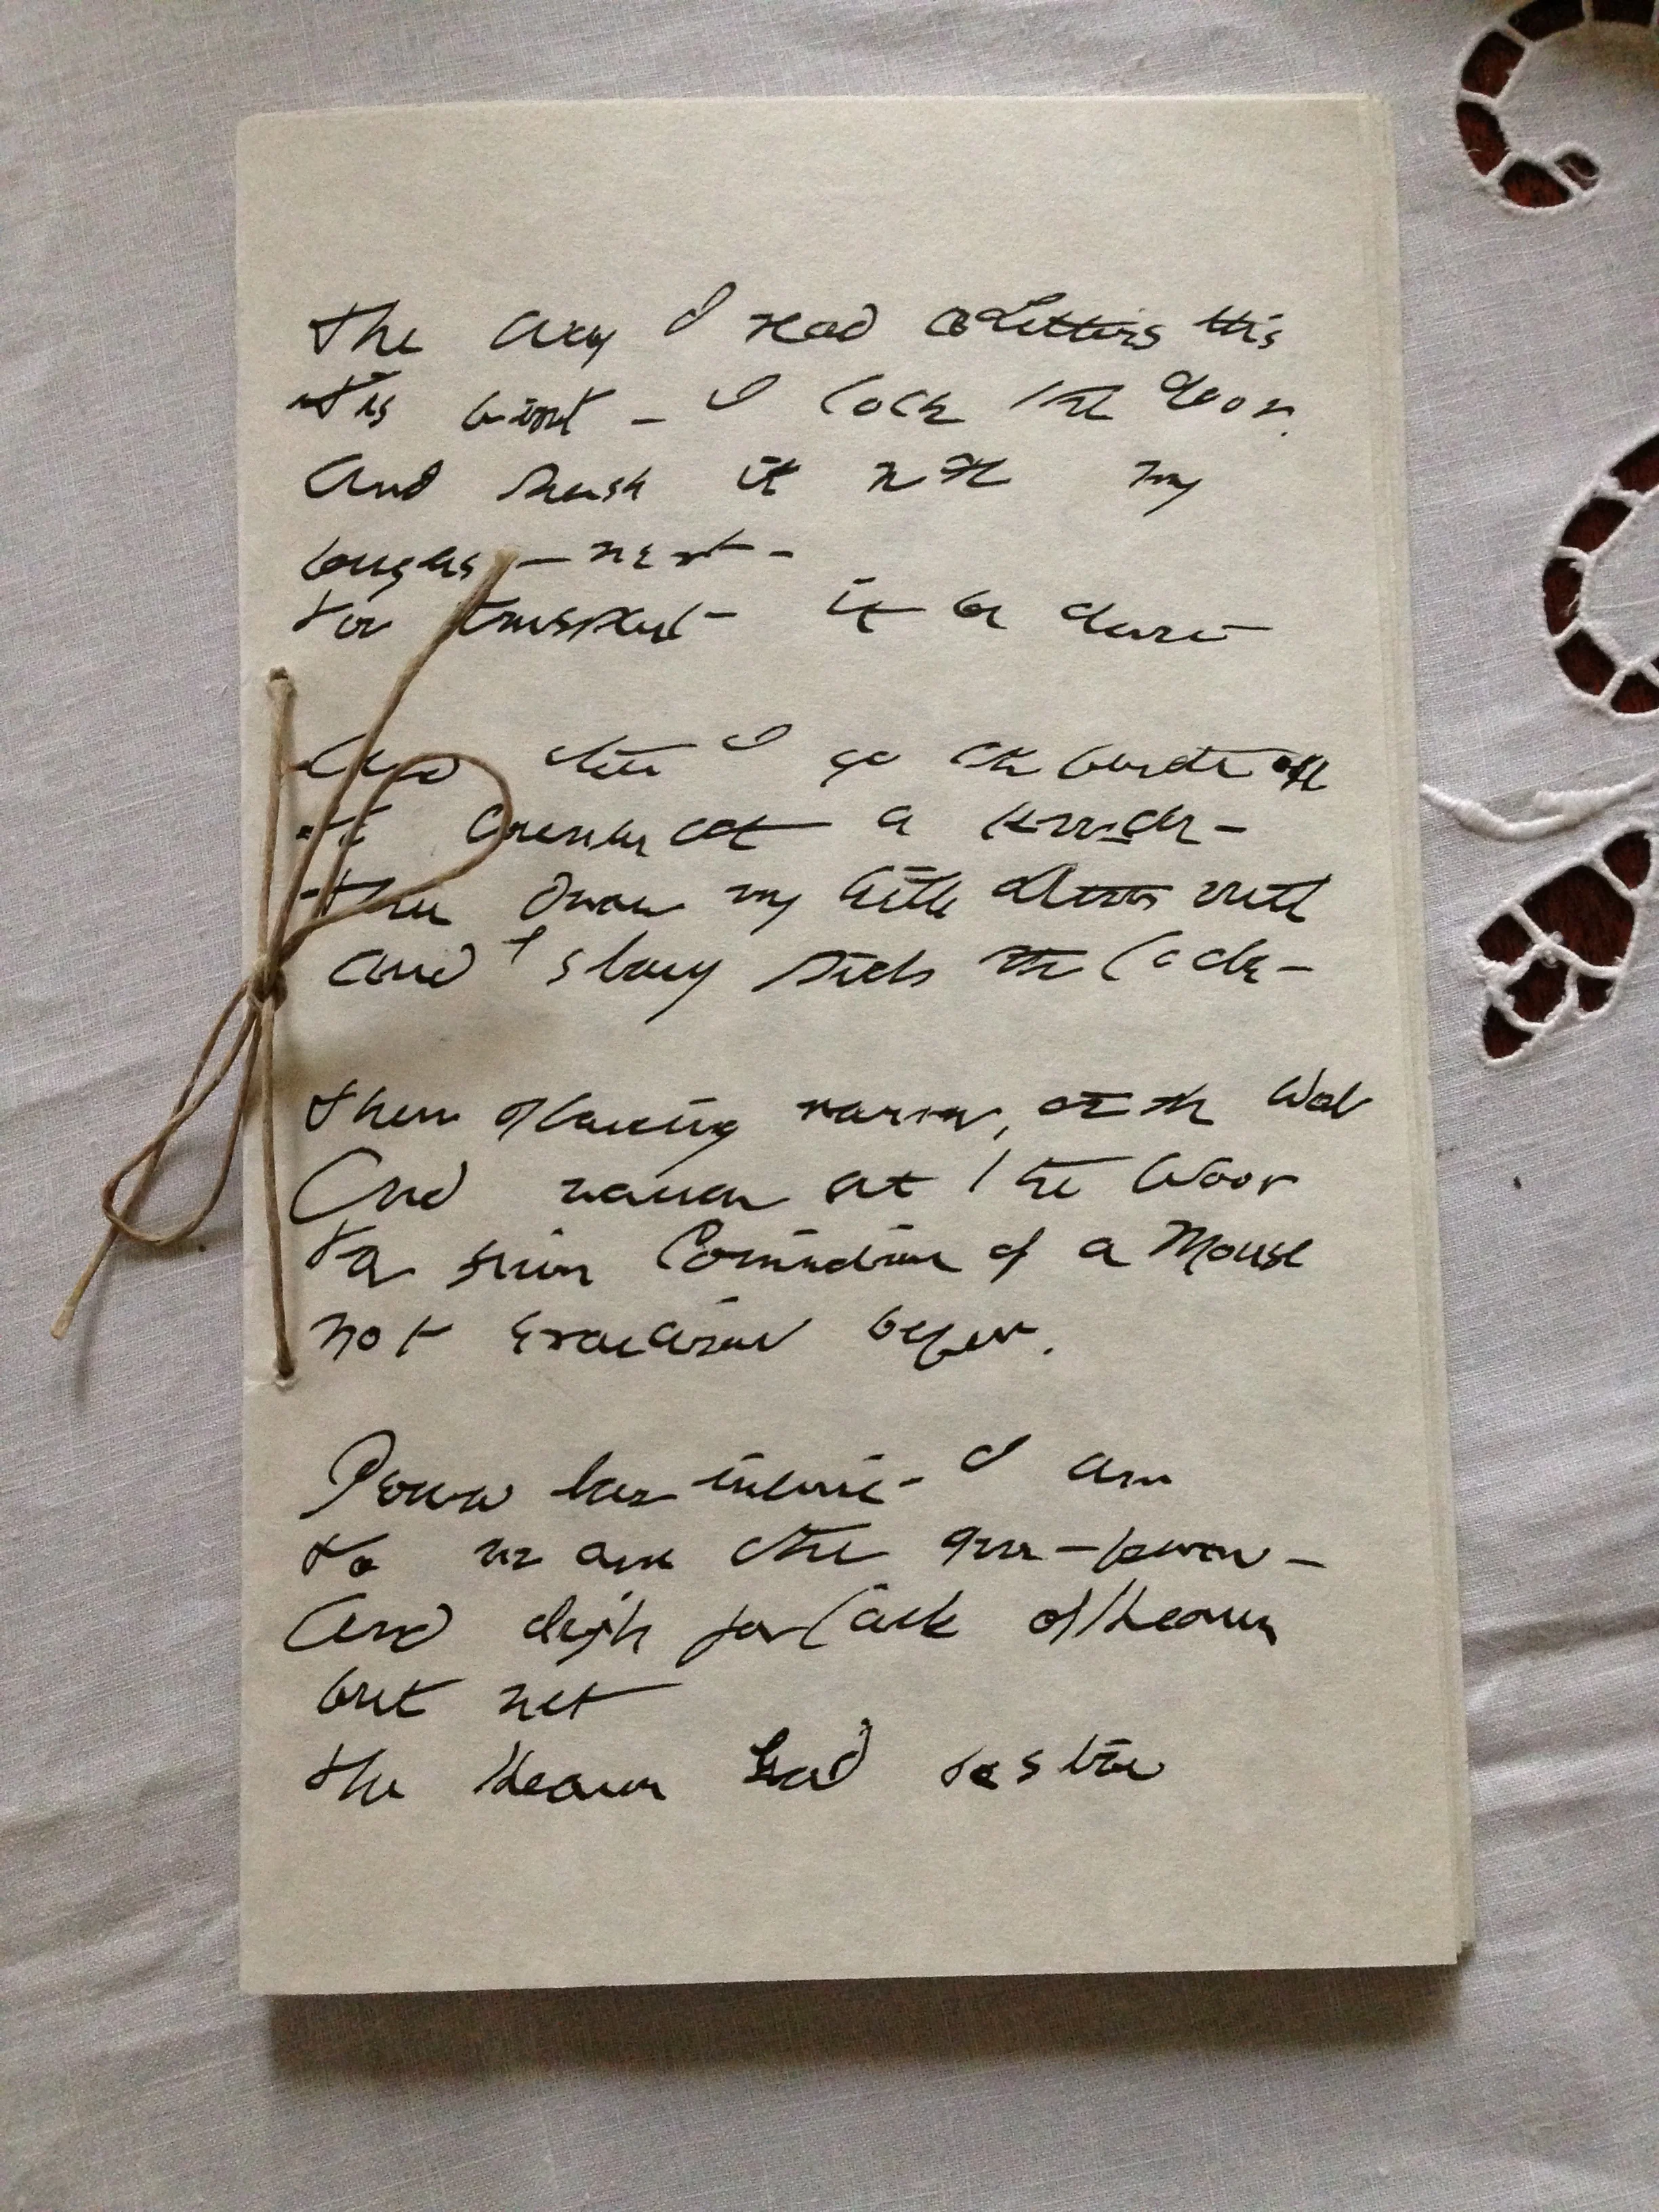 The Way I read a Letter's this
'Tis first - I lock the Door.
And push it with my
fingers - next -
For transport it be sure

And then I go the furthest off
To counteract a knock -
Then draw my little Letter forth
And slowly pick the lock -

Then glancing narrow, at the Wall
And narrow at the floor
For firm Conviction of a Mouse
Not exorcised before.

Peruse how infinite I am
To no one that You - know -
And sigh for lack of Heaven
but not
The Heaven God bestow